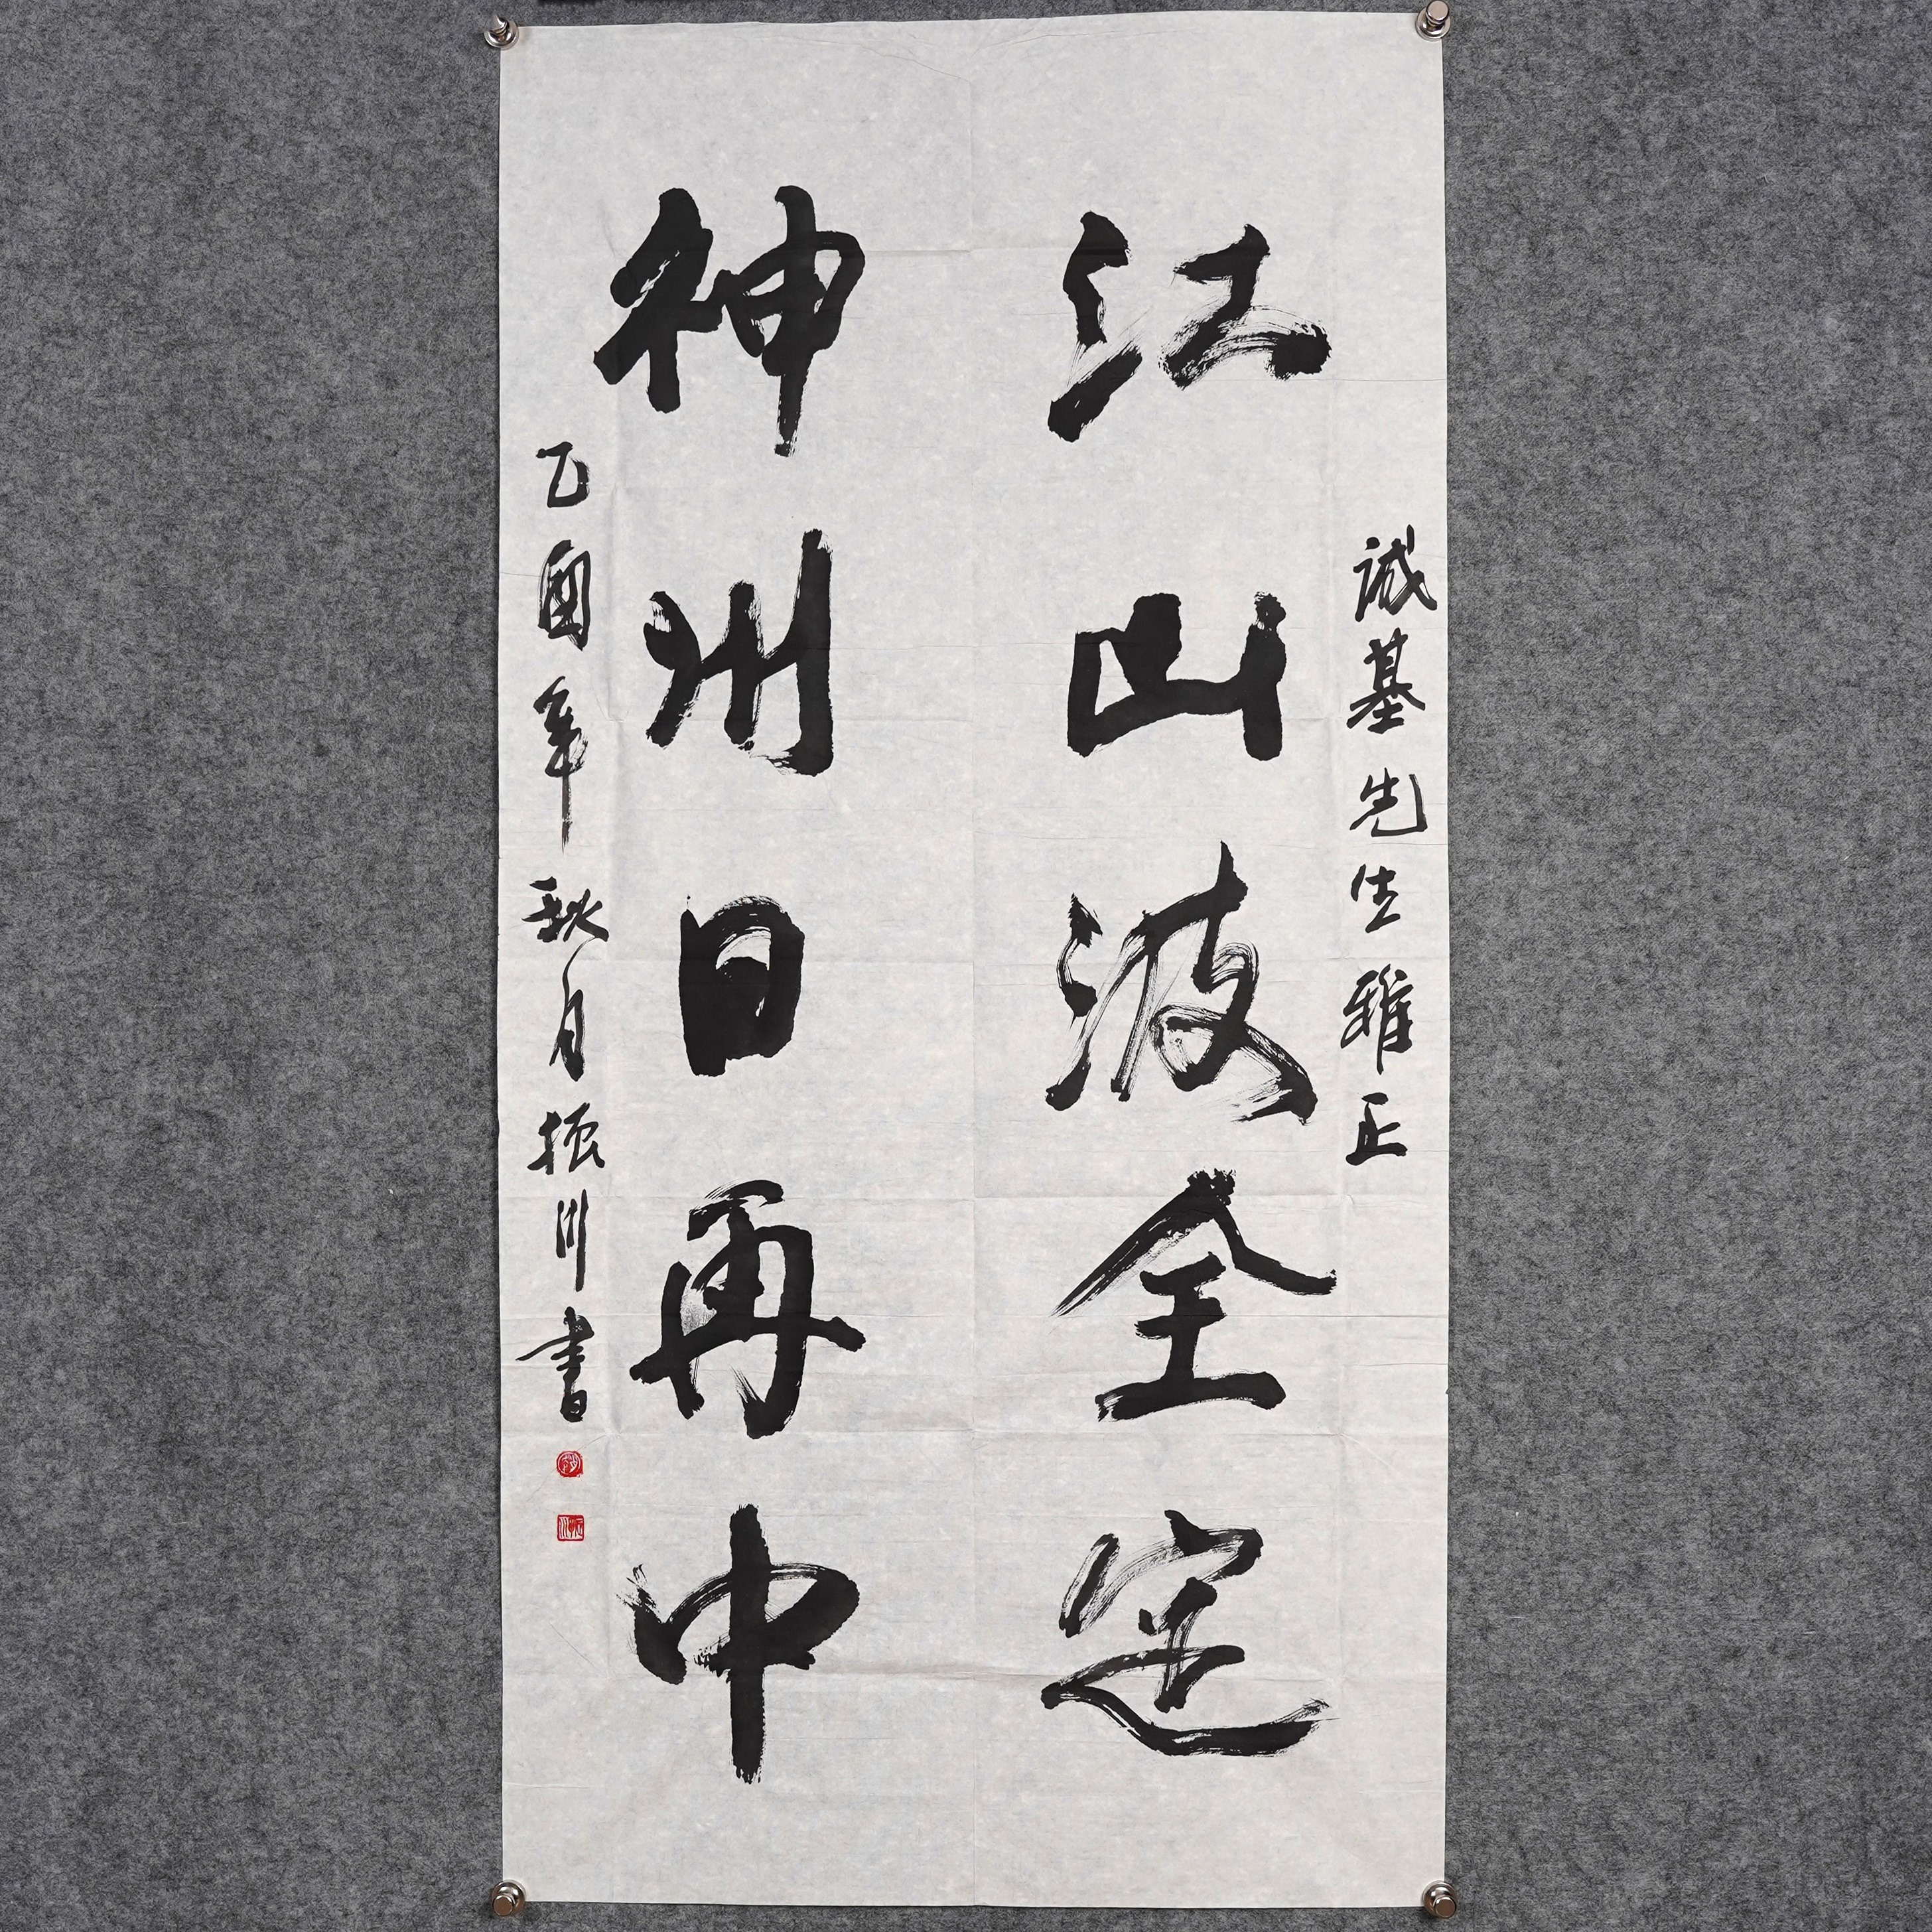 诚基先生雅正
江山波全定
神州日再中
乙酉年秋月振川书